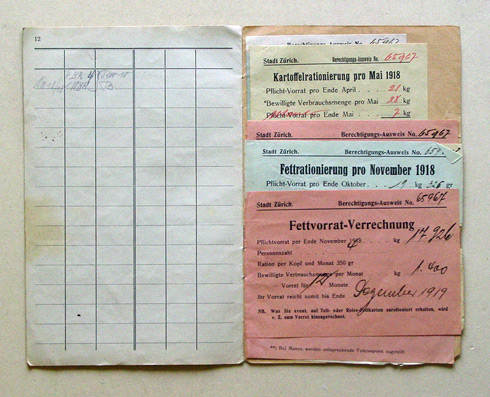 12
Berechtigungs-Ausweis No. 65967
Stadt Zürich. Berechtigungs-Ausweis No. 65967
Kartoffelrationierung pro Mai 1918
Pflicht-Vorrat pro Ende April . . . 21 kg
*Bewilligte Verbrauchsmenge pro Mai 28 kg
Pflicht-Vorrat pro Ende Mai . . . 7 kg
Stadt Zürich. Berechtigungs-Ausweis No. 65967
Stadt Zürich. Berechtigungs-Ausweis No.
Fettrationierung pro November 1918
Pflicht-Vorrat pro Ende Oktober . . kg gr
Stadt Zürich. Berechtigungs-Ausweis No. 65967
Fettvorrat-Verrechnung
Pflichtvorrat per Ende November kg 17 926
Personenzahl 4
Ration per Kopf und Monat 350 gr
Bewilligte Verbrauchsmenge per Monat kg 1.400
Vorrat für 12 Monate
Ihr Vorrat reicht somit bis Ende Dezember 1919
NB. Was Sie event. auf Teil- oder Reise-Fettkarten zurationiert erhalten, wird
z. Z. zum Vorrat hinzugerechnet.